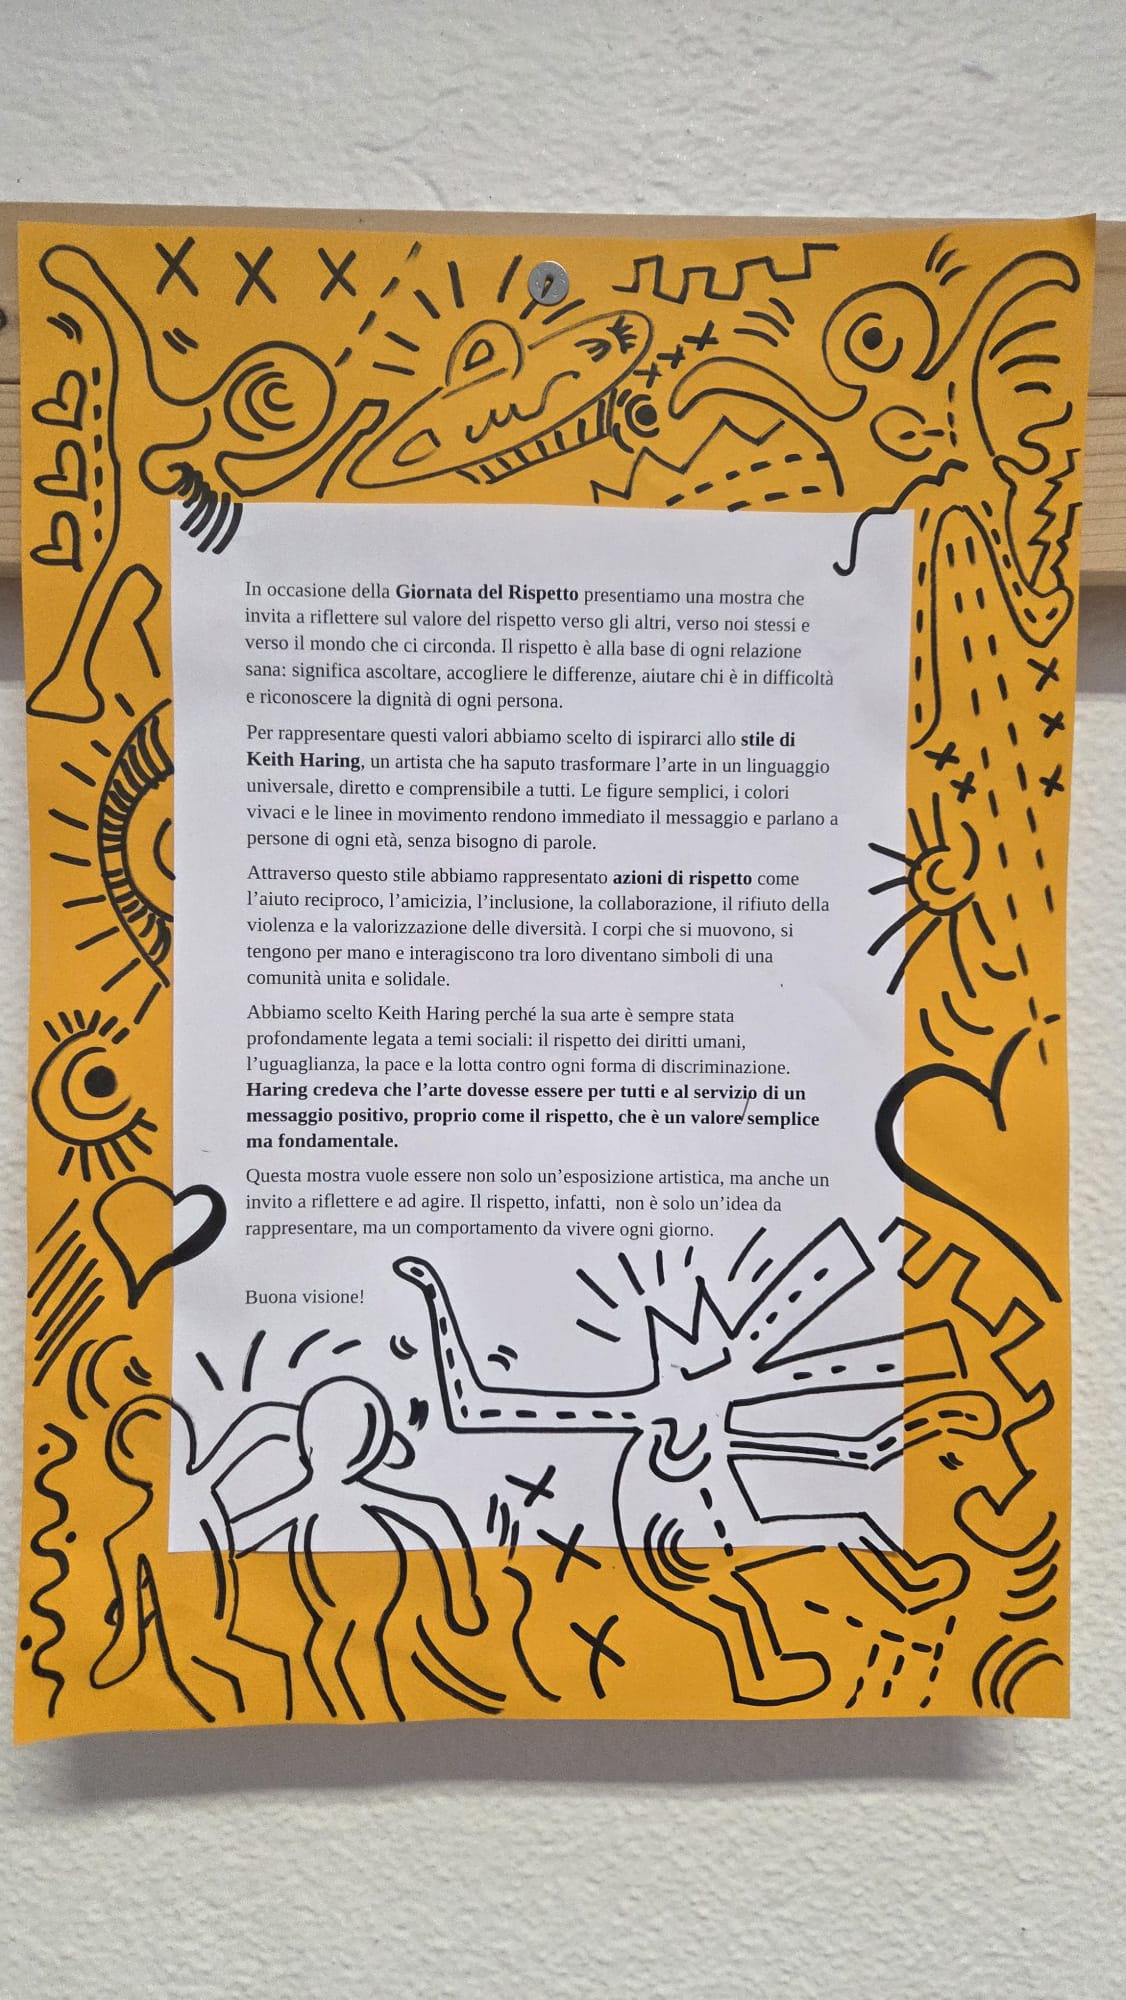 In occasione della Giornata del Rispetto presentiamo una mostra che
invita a riflettere sul valore del rispetto verso gli altri, verso noi stessi e
verso il mondo che ci circonda. Il rispetto è alla base di ogni relazione
sana: significa ascoltare, accogliere le differenze, aiutare chi è in difficoltà
e riconoscere la dignità di ogni persona.
Per rappresentare questi valori abbiamo scelto di ispirarci allo stile di
Keith Haring, un artista che ha saputo trasformare l’arte in un linguaggio
universale, diretto e comprensibile a tutti. Le figure semplici, i colori
vivaci e le linee in movimento rendono immediato il messaggio e parlano a
persone di ogni età, senza bisogno di parole.
Attraverso questo stile abbiamo rappresentato azioni di rispetto come
l’aiuto reciproco, l’amicizia, l’inclusione, la collaborazione, il rifiuto della
violenza e la valorizzazione delle diversità. I corpi che si muovono, si
tengono per mano e interagiscono tra loro diventano simboli di una
comunità unita e solidale.
Abbiamo scelto Keith Haring perché la sua arte è sempre stata
profondamente legata a temi sociali: il rispetto dei diritti umani,
l’uguaglianza, la pace e la lotta contro ogni forma di discriminazione.
Haring credeva che l’arte dovesse essere per tutti e al servizio di un
messaggio positivo, proprio come il rispetto, che è un valore semplice
ma fondamentale.
Questa mostra vuole essere non solo un’esposizione artistica, ma anche un
invito a riflettere e ad agire. Il rispetto, infatti, non è solo un’idea da
rappresentare, ma un comportamento da vivere ogni giorno.
Buona visione!